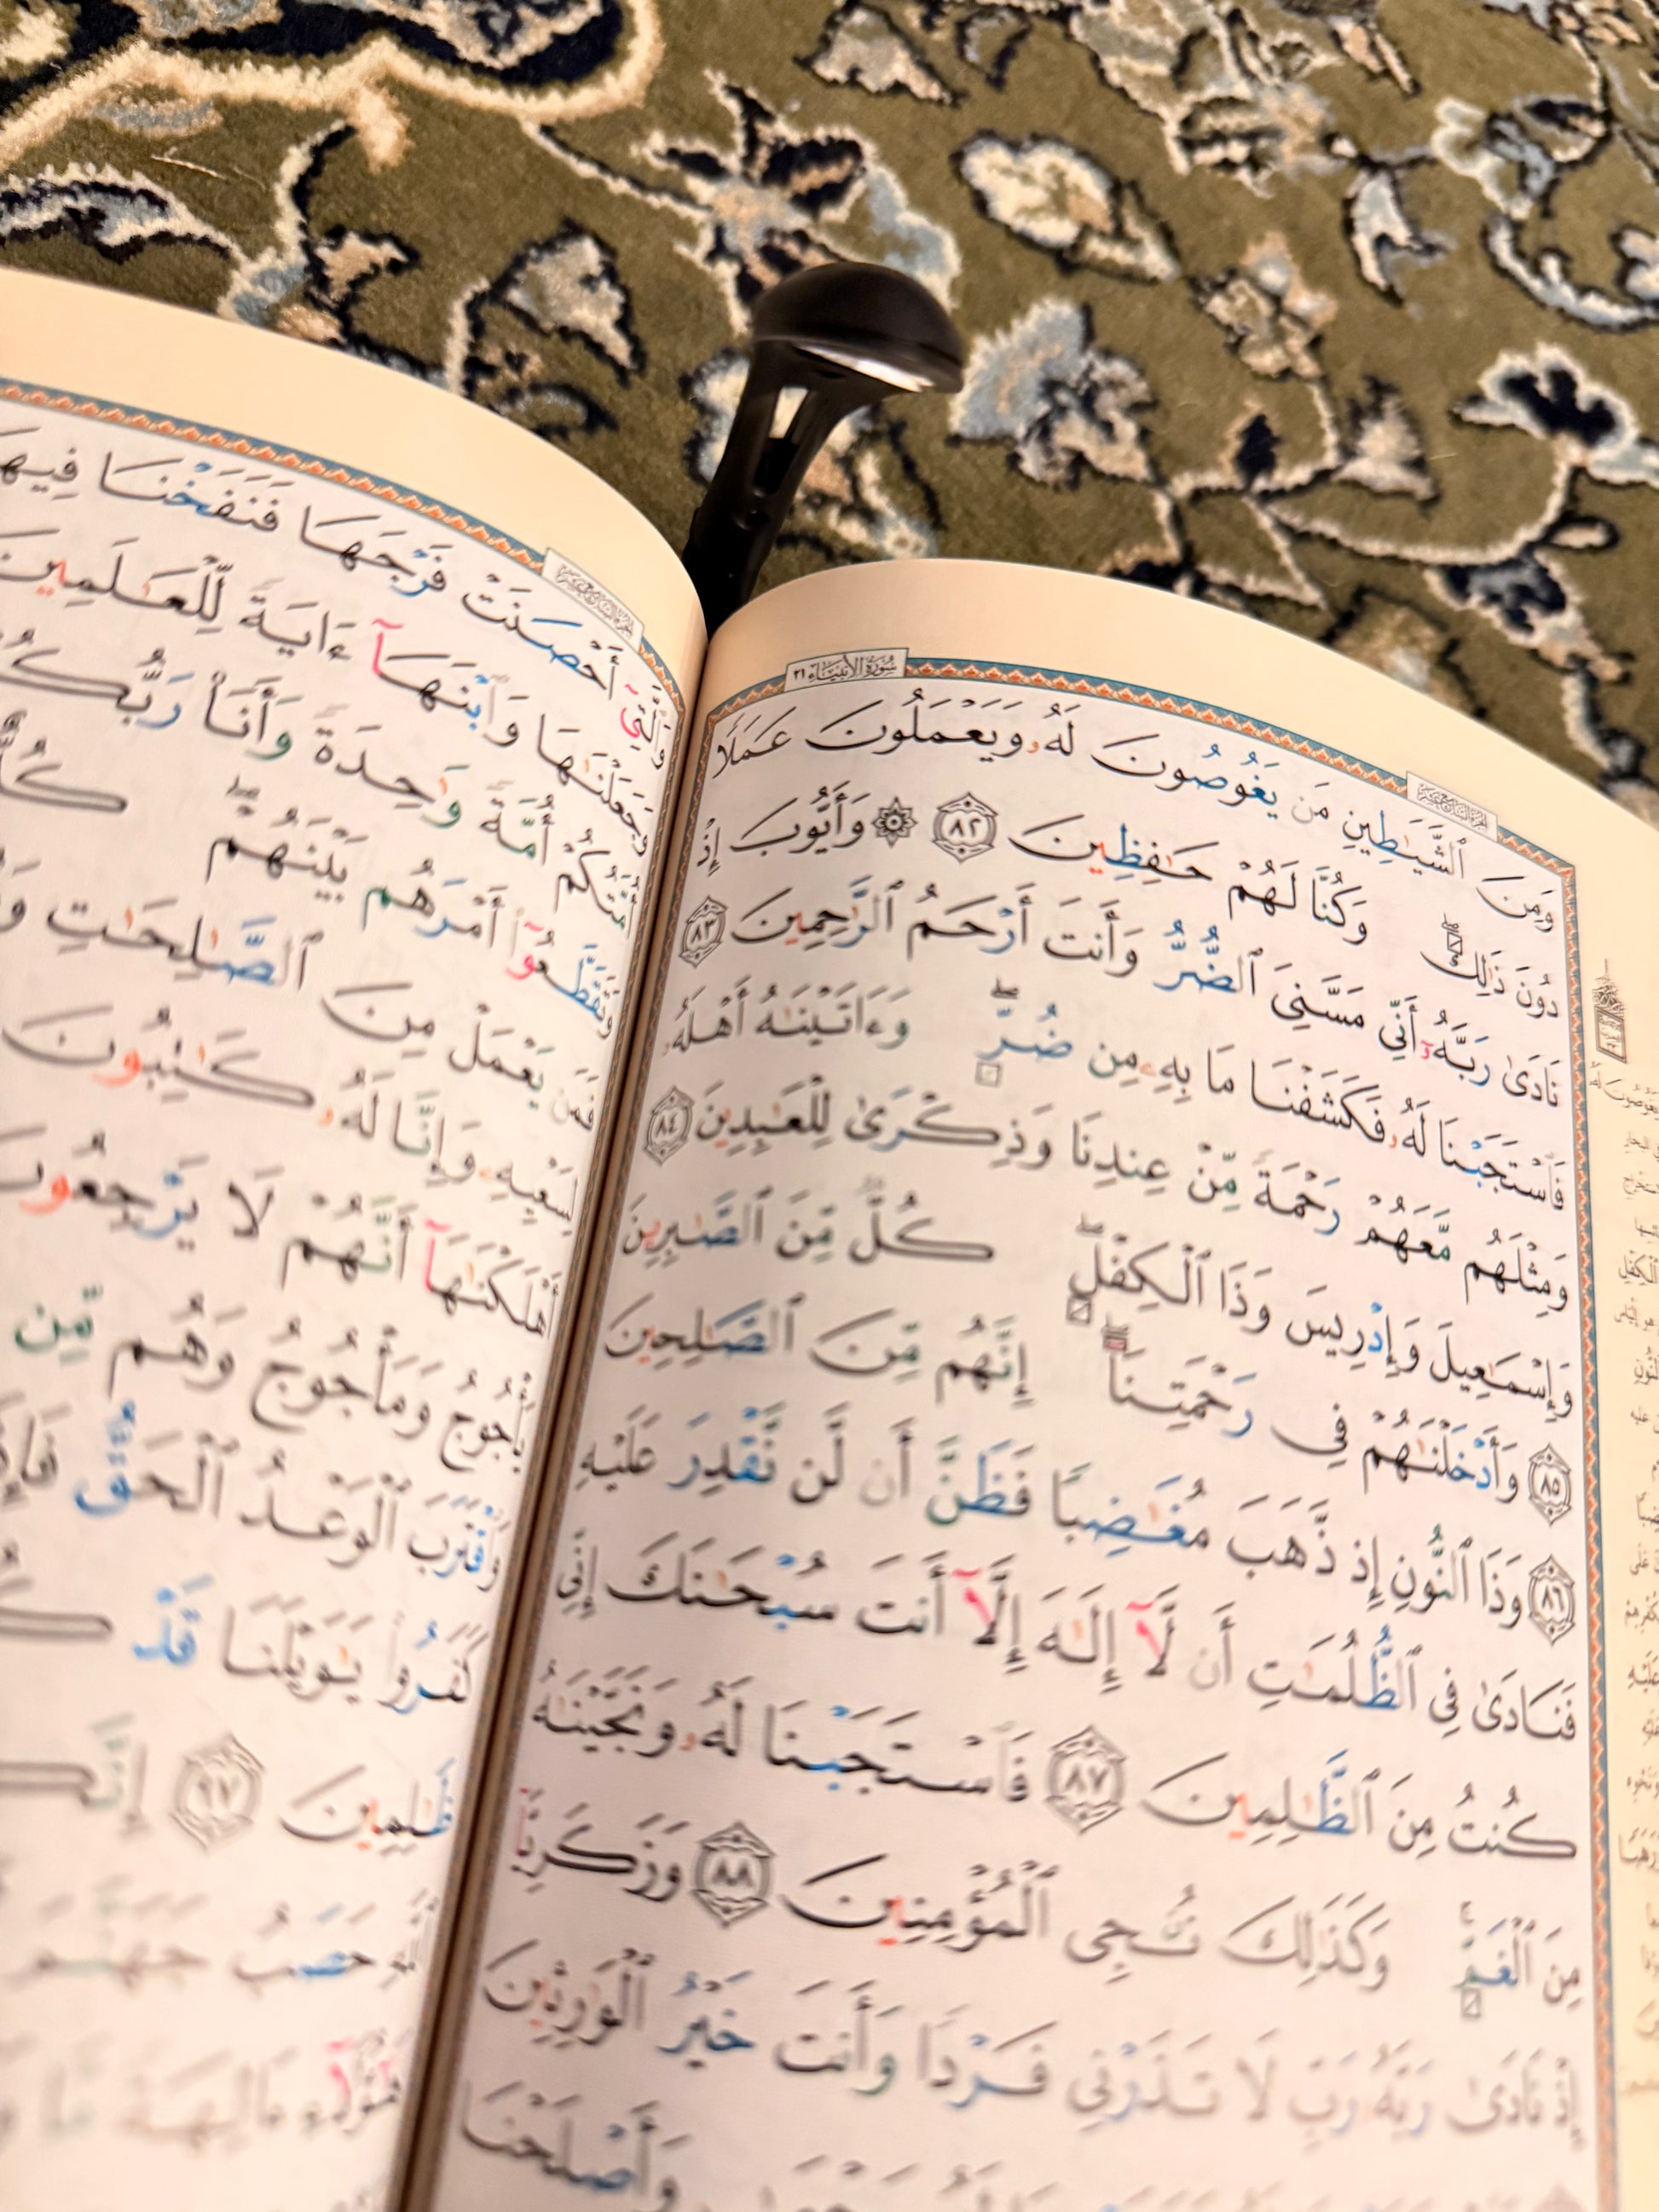 سُورَةُ الأَنبِيَاءِ ٢١
وَمِنَ ٱلشَّيَٰطِينِ مَن يَغُوصُونَ لَهُۥ وَيَعْمَلُونَ عَمَلًا
دُونَ ذَٰلِكَ وَكُنَّا لَهُمْ حَٰفِظِينَ ٨٢ ۞ وَأَيُّوبَ إِذْ
نَادَىٰ رَبَّهُۥٓ أَنِّي مَسَّنِيَ ٱلضُّرُّ وَأَنتَ أَرْحَمُ ٱلرَّٰحِمِينَ ٨٣
فَٱسْتَجَبْنَا لَهُۥ فَكَشَفْنَا مَا بِهِۦ مِن ضُرٍّ وَءَاتَيْنَٰهُ أَهْلَهُۥ
وَمِثْلَهُم مَّعَهُمْ رَحْمَةً مِّنْ عِندِنَا وَذِكْرَىٰ لِلْعَٰبِدِينَ ٨٤
وَإِسْمَٰعِيلَ وَإِدْرِيسَ وَذَا ٱلْكِفْلِ كُلٌّ مِّنَ ٱلصَّٰبِرِينَ
٨٥ وَأَدْخَلْنَٰهُمْ فِي رَحْمَتِنَا إِنَّهُم مِّنَ ٱلصَّٰلِحِينَ
٨٦ وَذَا ٱلنُّونِ إِذ ذَّهَبَ مُغَٰضِبًا فَظَنَّ أَن لَّن نَّقْدِرَ عَلَيْهِ
فَنَادَىٰ فِي ٱلظُّلُمَٰتِ أَن لَّآ إِلَٰهَ إِلَّآ أَنتَ سُبْحَٰنَكَ إِنِّي
كُنتُ مِنَ ٱلظَّٰلِمِينَ ٨٧ فَٱسْتَجَبْنَا لَهُۥ وَنَجَّيْنَٰهُ
مِنَ ٱلْغَمِّ وَكَذَٰلِكَ نُۨجِي ٱلْمُؤْمِنِينَ ٨٨ وَزَكَرِيَّآ
إِذْ نَادَىٰ رَبَّهُۥ رَبِّ لَا تَذَرْنِي فَرْدًا وَأَنتَ خَيْرُ ٱلْوَٰرِثِينَ
وَأَصْلَحْنَا
وَٱلَّتِيٓ أَحْصَنَتْ فَرْجَهَا فَنَفَخْنَا فِيهَا
وَجَعَلْنَٰهَا وَٱبْنَهَآ ءَايَةً لِّلْعَٰلَمِينَ
أُمَّتُكُمْ أُمَّةً وَٰحِدَةً وَأَنَا۠ رَبُّكُمْ
وَتَقَطَّعُوٓا۟ أَمْرَهُم بَيْنَهُمْ
فَمَن يَعْمَلْ مِنَ ٱلصَّٰلِحَٰتِ
لِسَعْيِهِۦ وَإِنَّا لَهُۥ كَٰتِبُونَ
أَهْلَكْنَٰهَآ أَنَّهُمْ لَا يَرْجِعُونَ
يَأْجُوجُ وَمَأْجُوجُ وَهُم مِّن
وَٱقْتَرَبَ ٱلْوَعْدُ ٱلْحَقُّ فَإِذَا
كَفَرُوا۟ يَٰوَيْلَنَا قَدْ
ظَٰلِمِينَ ٩٧
حَصَبُ جَهَنَّمَ
هَٰٓؤُلَآءِ ءَالِهَةً مَّا